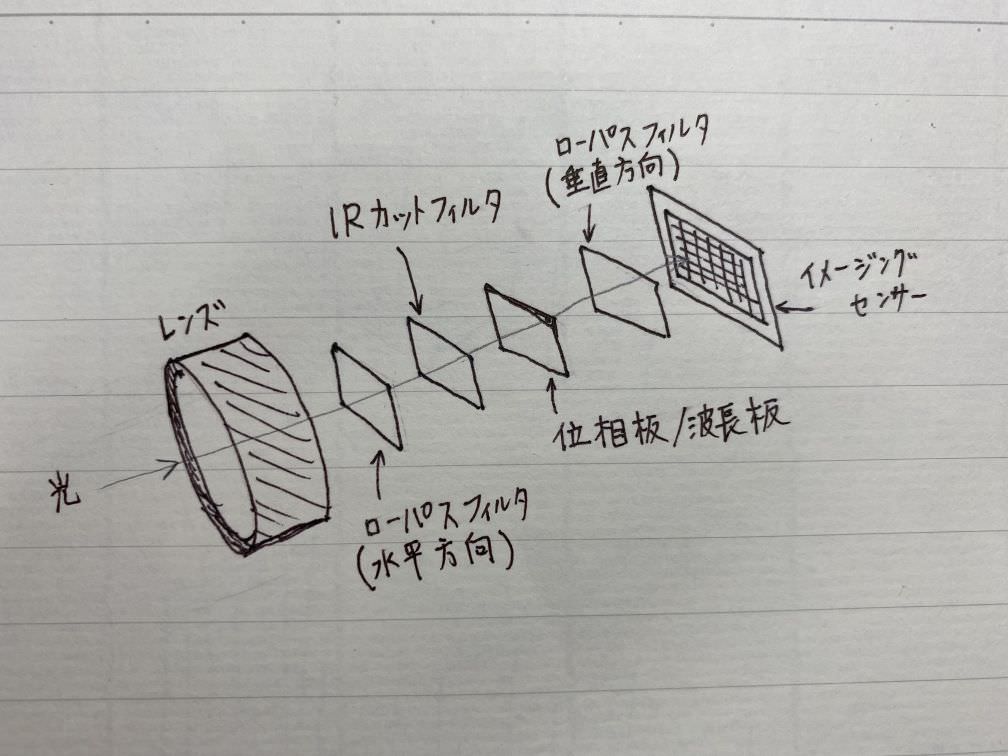 ローパスフィルタ
(垂直方向)
IRカットフィルタ
イメージング
センサー
レンズ
位相板/波長板
光
ローパスフィルタ
(水平方向)